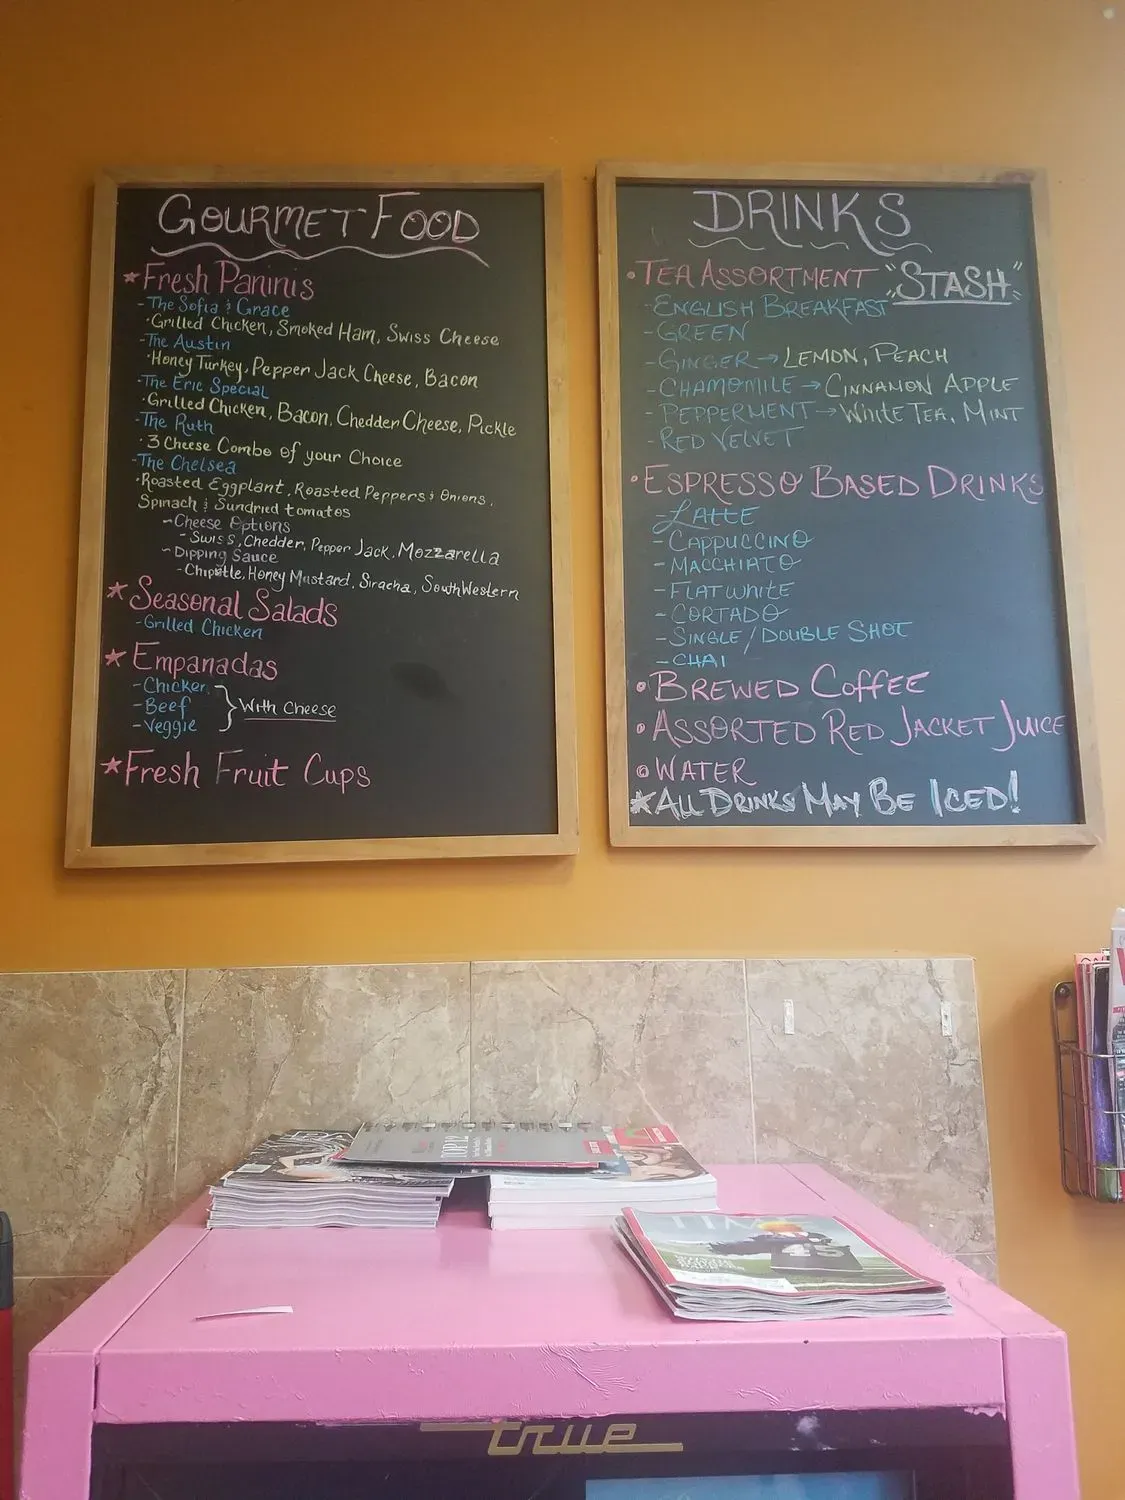 GOURMET FOOD
* Fresh Paninis
- The Sofia & Grace
· Grilled Chicken, Smoked Ham, Swiss Cheese
- The Austin
· Honey Turkey, Pepper Jack Cheese, Bacon
- The Eric Special
· Grilled Chicken, Bacon, Chedder Cheese, Pickle
- The Ruth
· 3 Cheese Combo of your Choice
- The Chelsea
· Roasted Eggplant, Roasted Peppers & Onions,
Spinach & Sundried tomatoes
- Cheese Options
- Swiss, Chedder, Pepper Jack, Mozzarella
- Dipping Sauce
- Chipotle, Honey Mustard, Siracha, SouthWestern
* Seasonal Salads
- Grilled Chicken
* Empanadas
- Chicken
- Beef } With Cheese
- Veggie
* Fresh Fruit Cups
DRINKS
• TEA ASSORTMENT "STASH"
- ENGLISH BREAKFAST
- GREEN
- GINGER → LEMON, PEACH
- CHAMOMILE → CINNAMON APPLE
- PEPPERMENT → WHITE TEA, MINT
- RED VELVET
• ESPRESSO BASED DRINKS
- LATTE
- CAPPUCCINO
- MACCHIATO
- FLAT WHITE
- CORTADO
- SINGLE/DOUBLE SHOT
- CHAI
• BREWED COFFEE
• ASSORTED RED JACKET JUICE
• WATER
* ALL DRINKS MAY BE ICED!
TOP 12
TIME
45
true